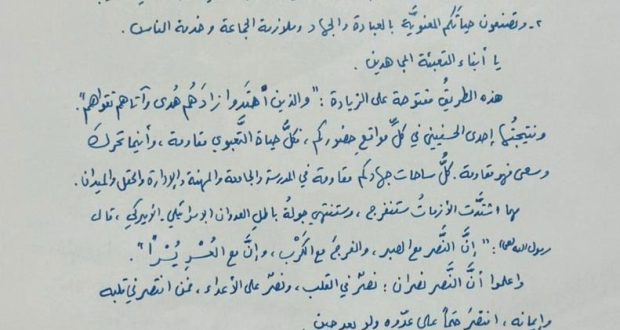 ٢- وتصنعون حياتكم المعنويَّة بالعبادة والجهاد وملازمة الجماعة وخدمة الناس.
يا أبناء التعبئة المجاهدين.
هذه الطريقُ مفتوحة على الزيادة: "والذين اهتَدَوا زادَهُم هُدى وآتاهم تقواهم".
ونتيجتُها إحدى الحسنيين في كلِّ مواقع حضوركم، فكلُّ حياة التَّعبوي مقاومة، وأينما تحرك
وسعى فهو مقاومة. كلُّ ساحات جهادكم مقاومة في المدرسة والجامعة والمهنة والإدارة والحقل والميدان.
مهما اشتدَّت الأزماتُ ستنفرج، وستنتهي جولةُ باطلِ العدوان الإسرائيلي-الأميركي، قال
رسول الله(ص): "إنَّ النَّصر مع الصبر، والفرجَ مع الكَرْب، وإنَّ مع العُسْرِ يُسْراً".
واعلموا أنَّ النَّصر نصران: نصرٌ في القلب، ونصرٌ على الأعداء، فمن انتصر في قلبه
وإيمانه، انتصَرَ حتماً على عدّوه ولو بعد حين.